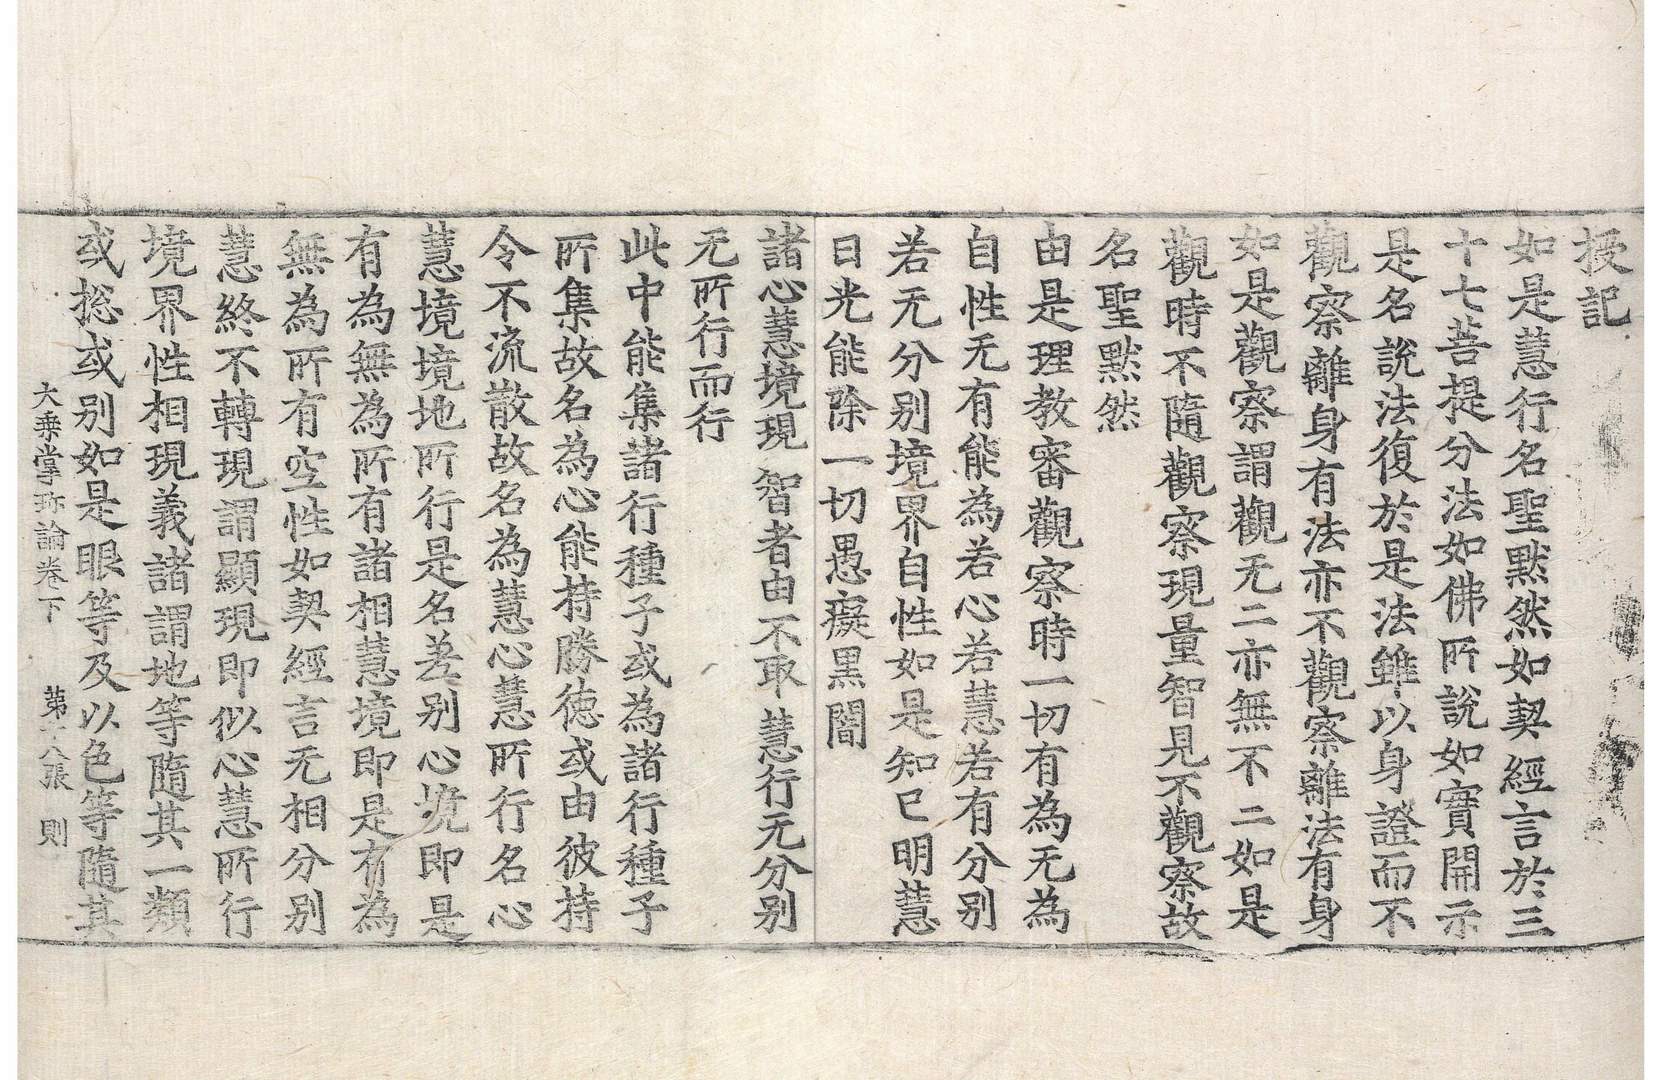 授記
如是慧行名聖默然如契經言於三
十七菩提分法如佛所說如實開示
是名說法復於是法雖以身證而不
觀察離身有法亦不觀察離法有身
如是觀察謂觀无二亦無不二如是
觀時不隨觀察現量智見不觀察故
名聖默然
由是理教審觀察時一切有為无為
自性无有能為若心若慧若有分別
若无分別境界自性如是知已明慧
日光能除一切愚癡黑闇
諸心慧境現 智者由不取 慧行无分別
无所行而行
此中能集諸行種子或為諸行種子
所集故名為心能持勝徳或由彼持
令不流散故名為慧心慧所行名心
慧境境地所行是名差別心境即是
有為無為所有諸相慧境即是有為
無為所有空性如契經言无相分別
慧終不轉現謂顯現即似心慧所行
境界性相現義諸謂地等隨其一類
或捴或別如是眼等及以色等隨其
大乗掌珎論卷下 第十八張 則